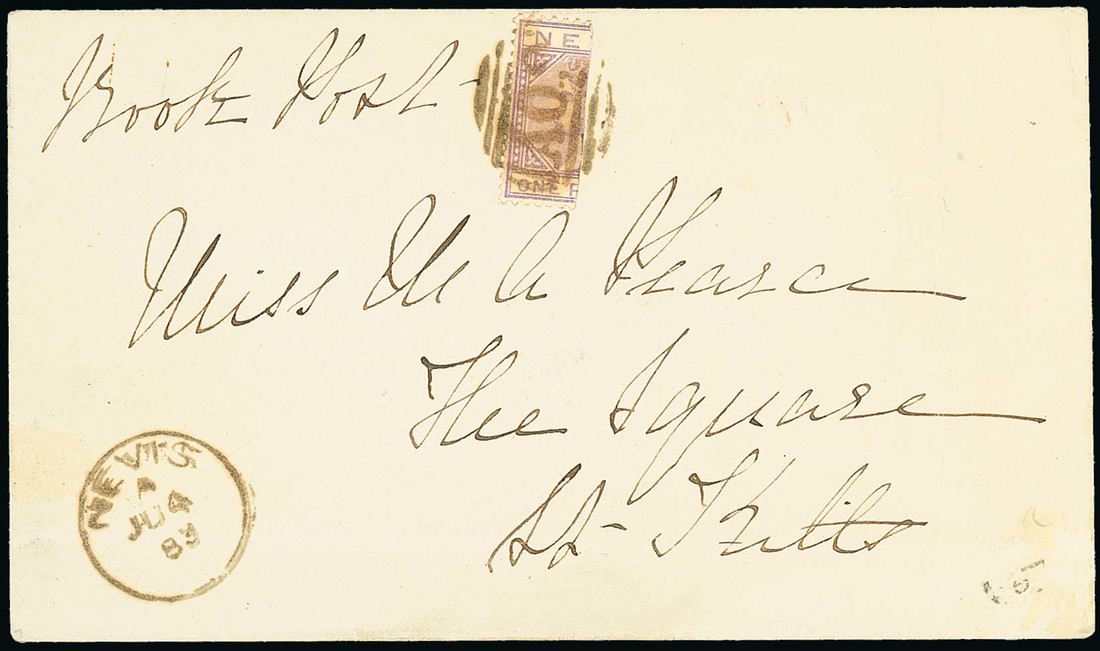 Book Post
NE
A09
ONE
Miss M A Pearce
The Square
St Kitts
NEVIS
A
JU 4
83